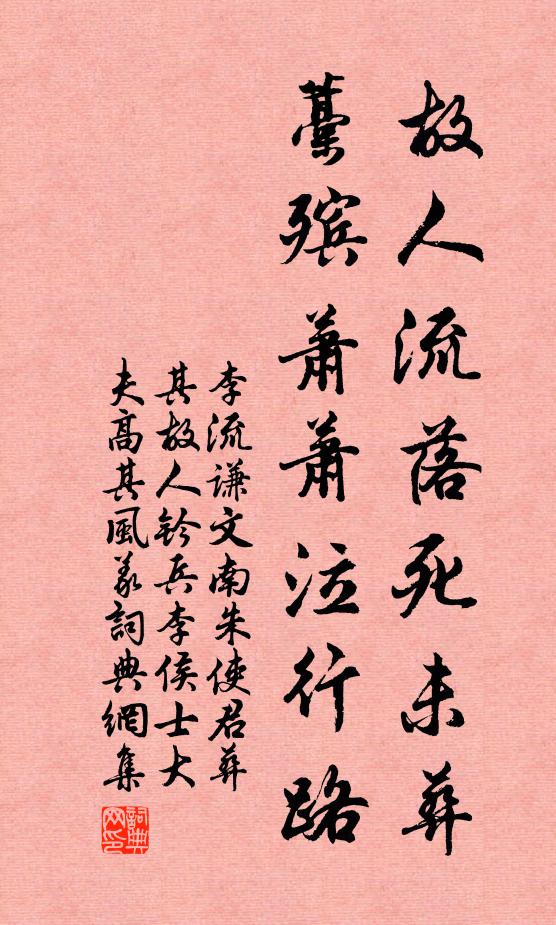 故人流落死未葬
藁殯蕭蕭泣行路
李流谦文南朱使君葬
其故人鈐兵李侯士大
夫高其風義詞典網集
詞典网印